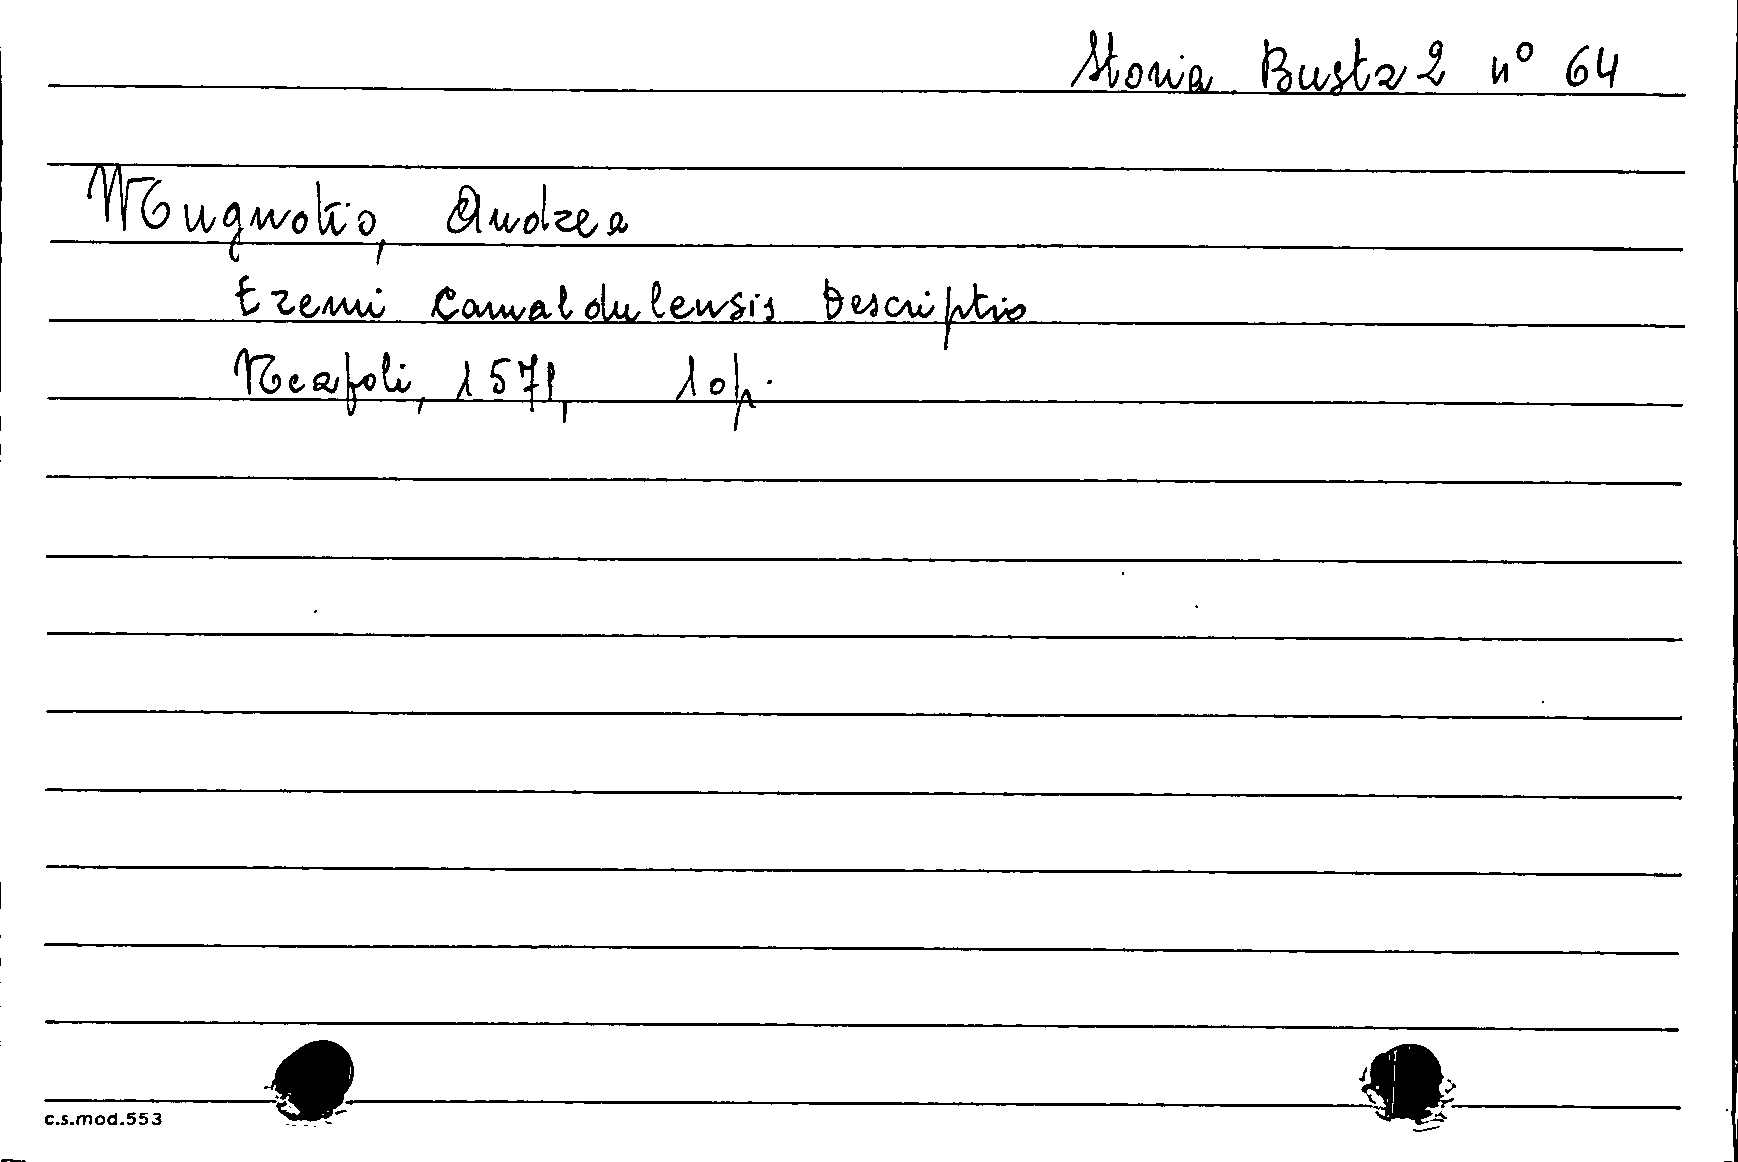 Storia Busta 2 n° 64
Mugnotio, Andrea
Eremi Camaldulensis Descriptio
Neapoli, 1571, 10 p.
c.s.mod.553